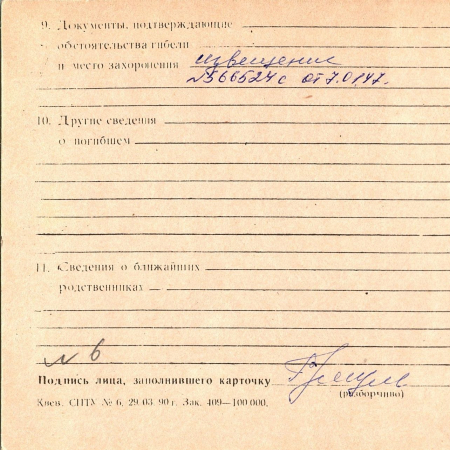 9. Документы, подтверждающие
обстоятельства гибели
и место захоронения извещение
№566524с от 7.01.47.
10. Другие сведения
о погибшем
11. Сведения о ближайших
родственниках
№ 6
Подпись лица, заполнившего карточку
(разборчиво)
Киев. СПТУ № 6. 29.03.90 г. Зак. 409—100 000.